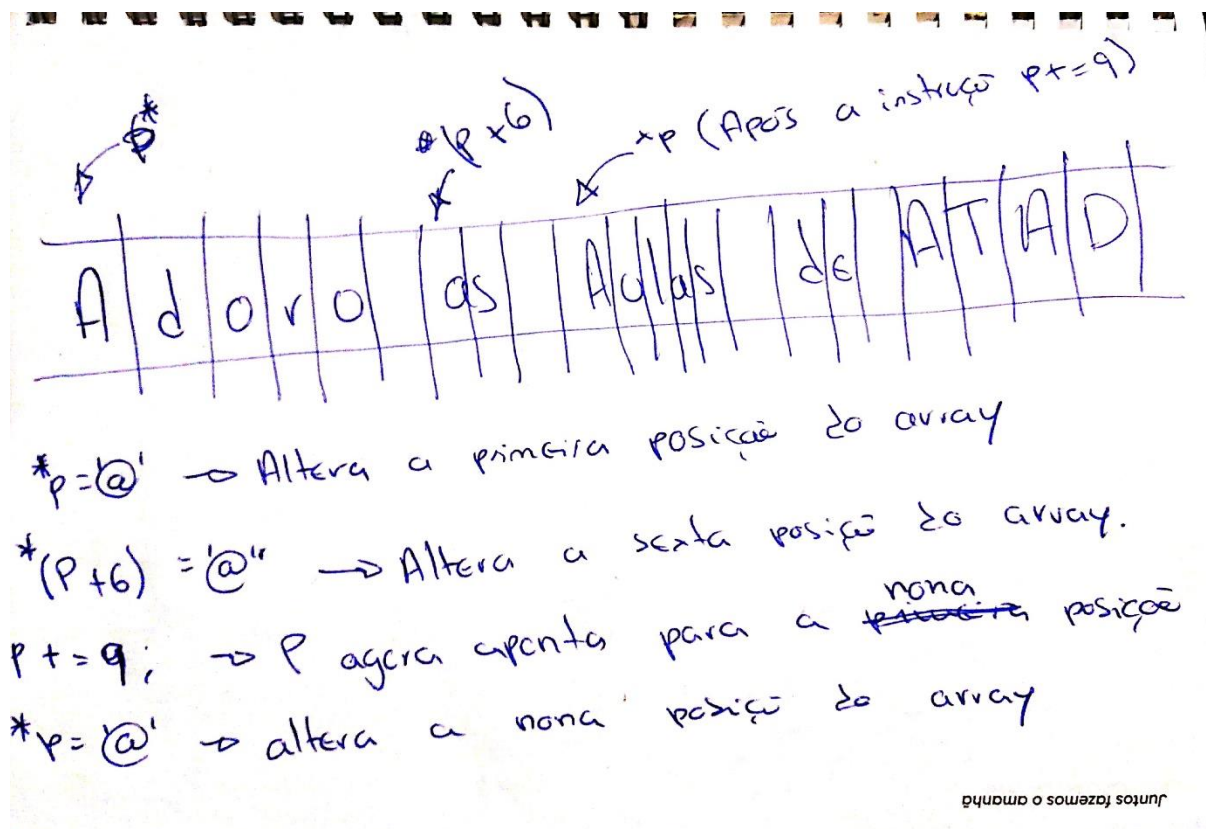 *p *(p+6) *p (Após a instruçõ p+=9)
A d o r o as Aulas de ATAD
*p='@' → Altera a primeira posição do array
*(P+6) ='@'' → Altera a sexta posiçõ do array.
nona
p+=9; → P agora aponta para a primeira posição
*p='@' → altera a nona posiçõ do array
Juntos fazemos o amanhã